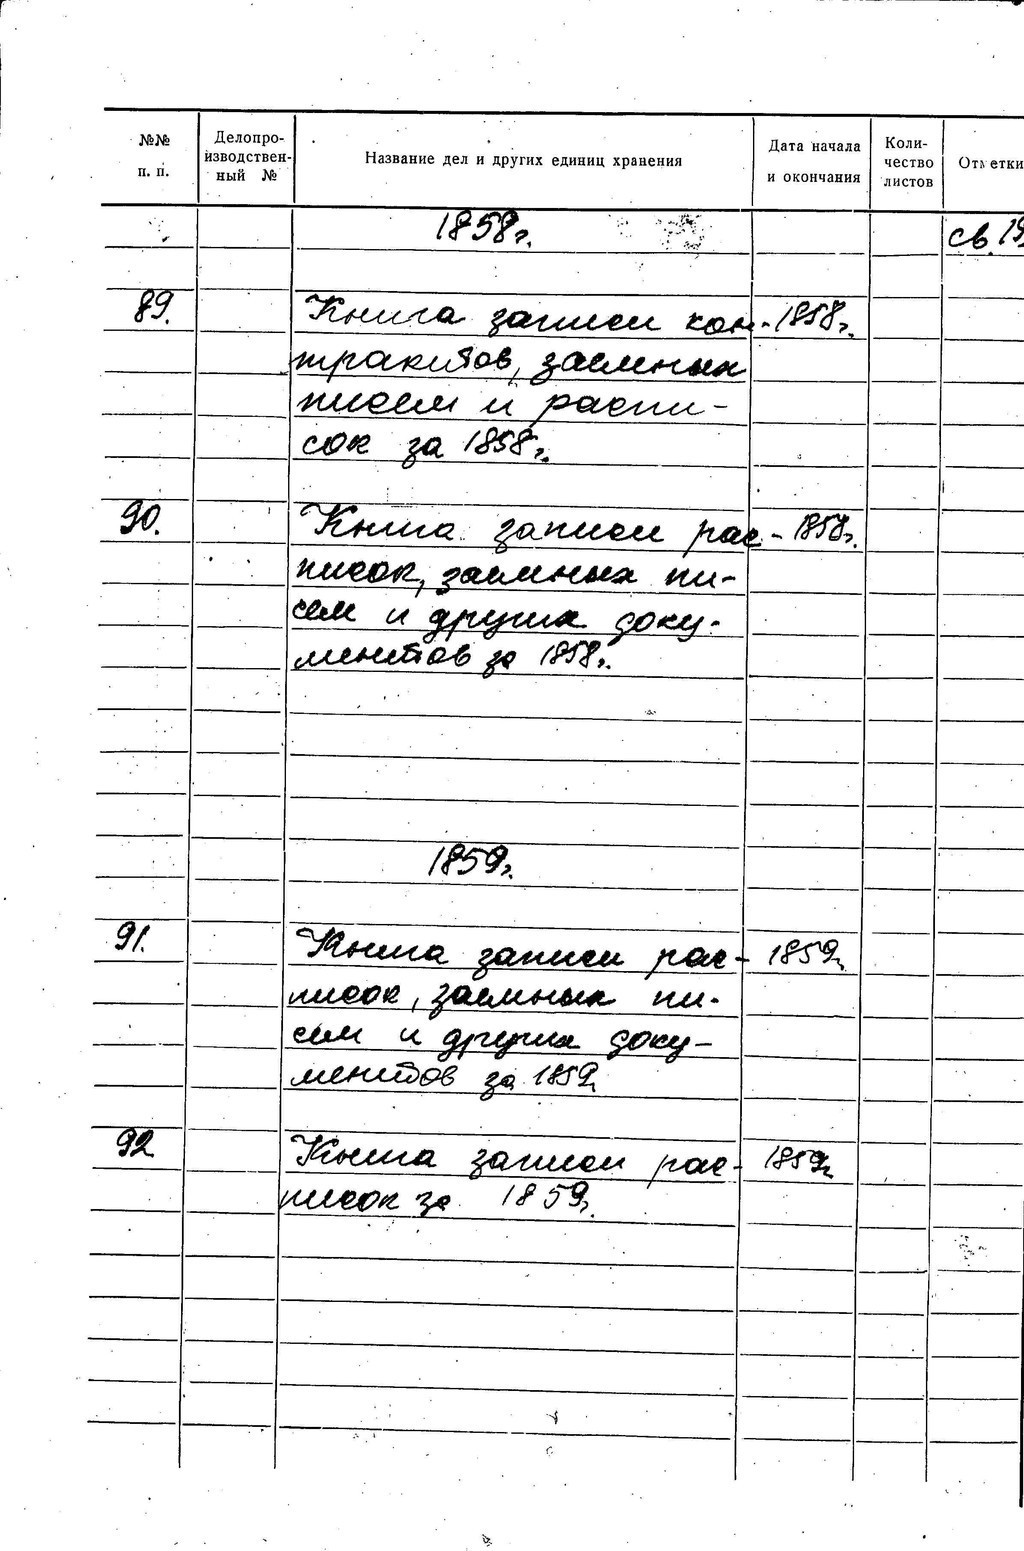 №№ п. п.
Делопро-
изводствен-
ный №
Название дел и других единиц хранения
Дата начала
и окончания
Коли-
чество
листов
Отметки
1858г.
св.
89. Книга записи кон- 1858г.
трактов, заемных
писем и распи-
сок за 1858г.
90. Книга записи рас- 1858г.
писок, заемных пи-
сем и других доку-
ментов за 1858г.
1859г.
91. Книга записи рас- 1859г
писок, заемных пи-
сем и других доку-
ментов за 1859г
92 Книга записи рас- 1859г
писок за 1859г.